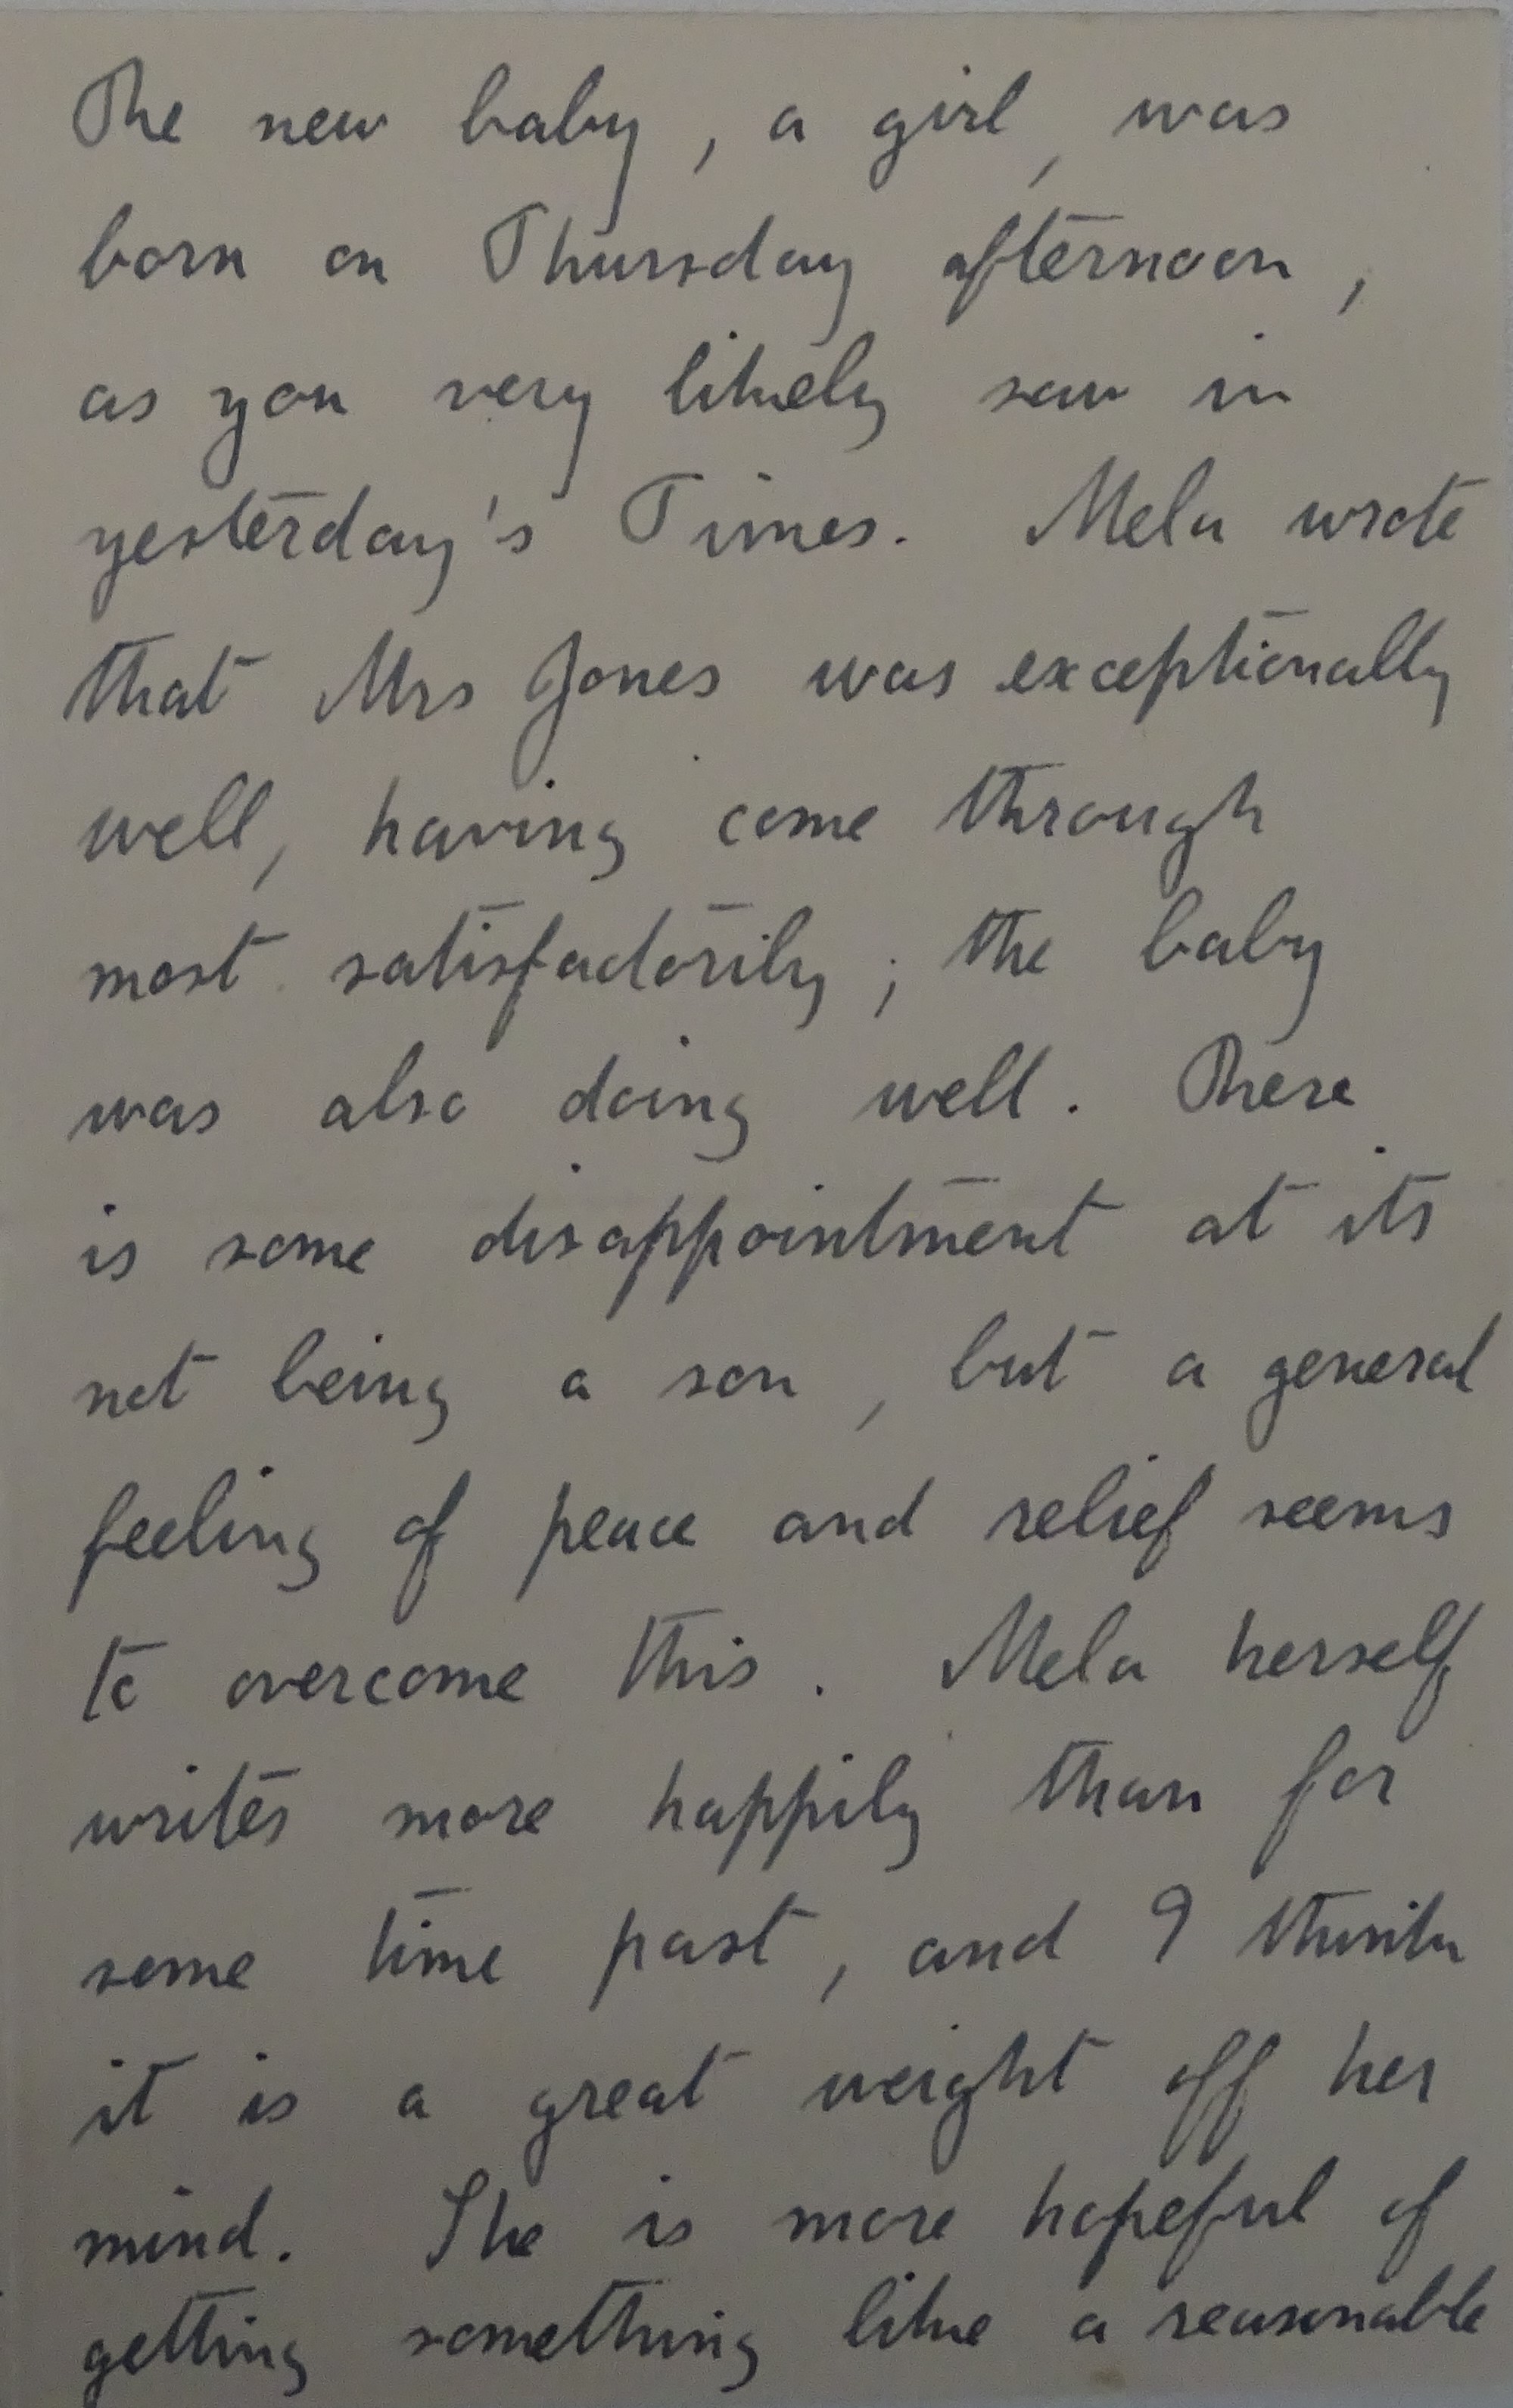 The new baby, a girl, was
born on Thursday afternoon,
as you very likely saw in
yesterday's Times. Mela wrote
that Mrs Jones was exceptionally
well, having come through
most satisfactorily; the baby
was also doing well. There
is some disappointment at its
not being a son, but a general
feeling of peace and relief seems
to overcome this. Mela herself
writes more happily than for
some time past, and I think
it is a great weight off her
mind. She is more hopeful of
getting something like a reasonable